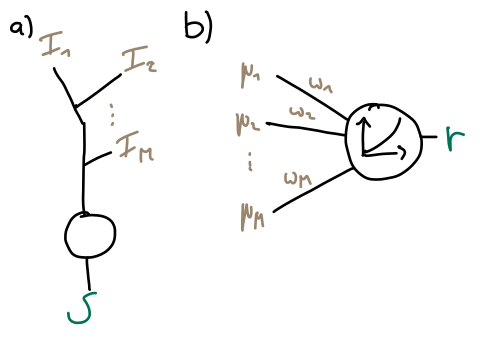 a)
I₁
I₂
⋮
I_M
S
b)
μ₁ w₁
μ₂ w₂
⋮
μ_M w_M
r